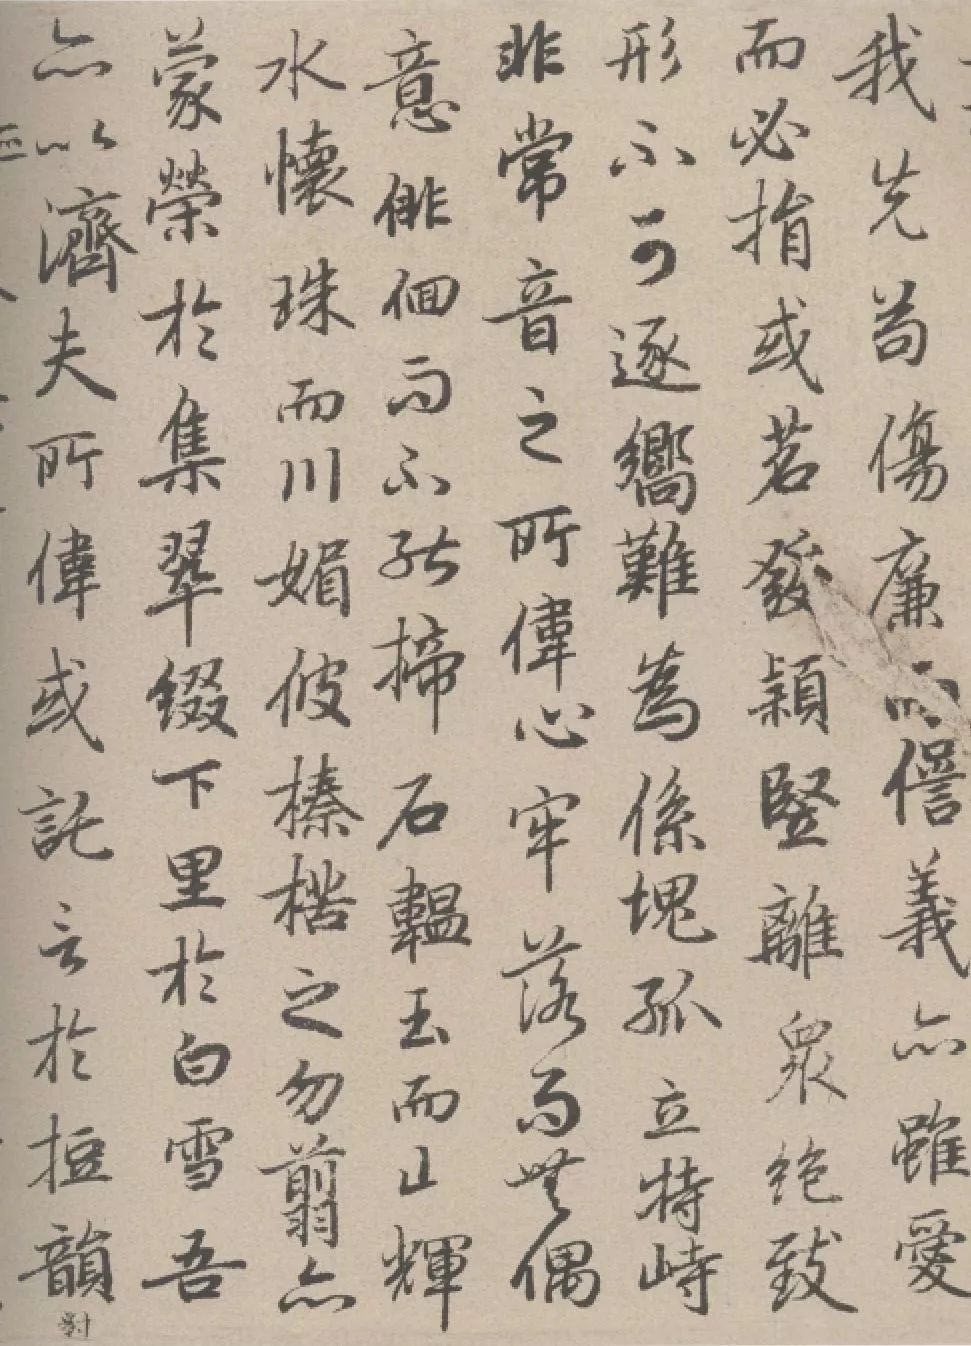 我先苟傷廉而諐義亦雖愛
而必捐或苕發穎竪離眾絕致
形不可逐嚮難為係塊孤立特峙
非常音之所偉心牢落而無偶
意俳佪而不能揥石韞玉而山輝
水懷珠而川媚彼榛楛之勿翦亦
蒙榮於集翠綴下里於白雪吾
亦以濟夫所偉或託言於短韻
對